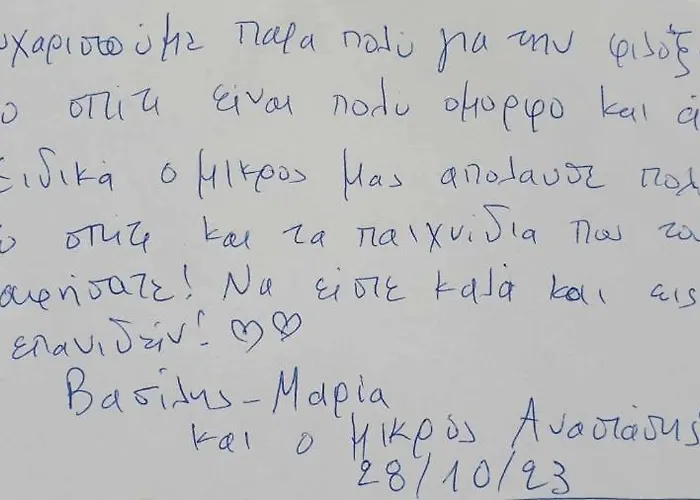 υχαριστούμε παρα πολύ για την φιλοξ
ο σπίτι είναι πολύ ομορφο και ά
ειδικά ο μικρος μας απολαυσε πολ
ο σπίτι και τα παιχνίδια που το
αφήσατε! Να είστε καλά και εις
επανιδείν! ♡♡
Βασίλης - Μαρία
και ο μικρός Αναστάσης
28/10/23